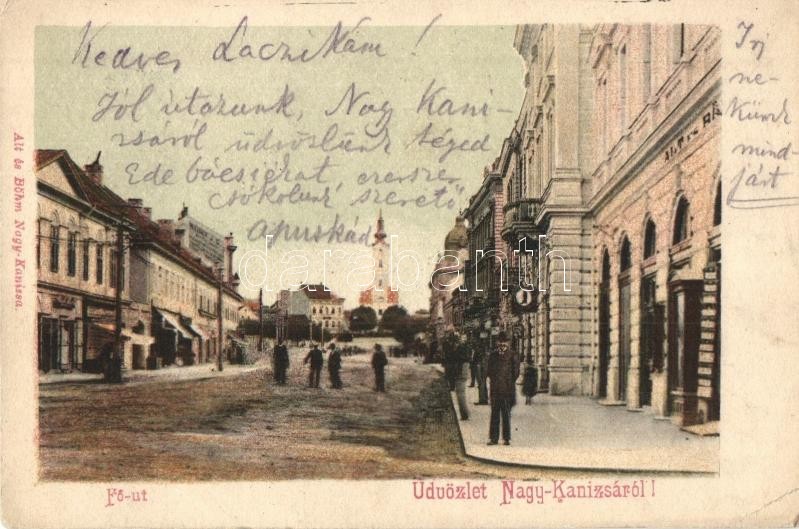 Kedves Laczikám!
Jól utazunk, Nagy Kani-
zsáról üdvözlünk téged
Ede bácsiékat ezerszer
csókolunk szerető
apuskád
Irj
ne-
künk
mind-
járt
Alt és Böhm Nagy-Kanissa.
ALT és BÖ
darabanth
Fő-ut
Üdvözlet Nagy-Kanizsáról!